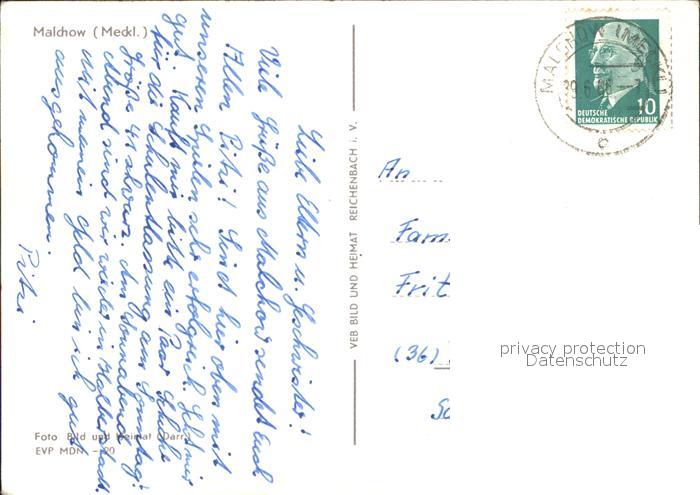 Malchow (Meckl.)
Liebe Eltern u. Geschwister!
Viele Grüße aus Malchow sendet Euch
Allen Pitri! Sind hier oben mit
unseren Spielen sehr erfolgreich. Geht mir
gut. Kauft mir bitte ein Paar Schuhe
für die Schulentlassung am Sonntag!
Größe 41 schwarz. Am Sonnabend
Abend sind wir wieder in Halberstadt.
Mit meinem Geld bin ich gut
ausgekommen.
Pitri
Foto Bild und Heimat (Darr)
EVP MDN –20
VEB BILD UND HEIMAT REICHENBACH i. V.
MALCHOW (MECKL)
29.6.66
c
10
DEUTSCHE
DEMOKRATISCHE REPUBLIK
An
Fam
Frit
(36)
privacy protection
Datenschutz